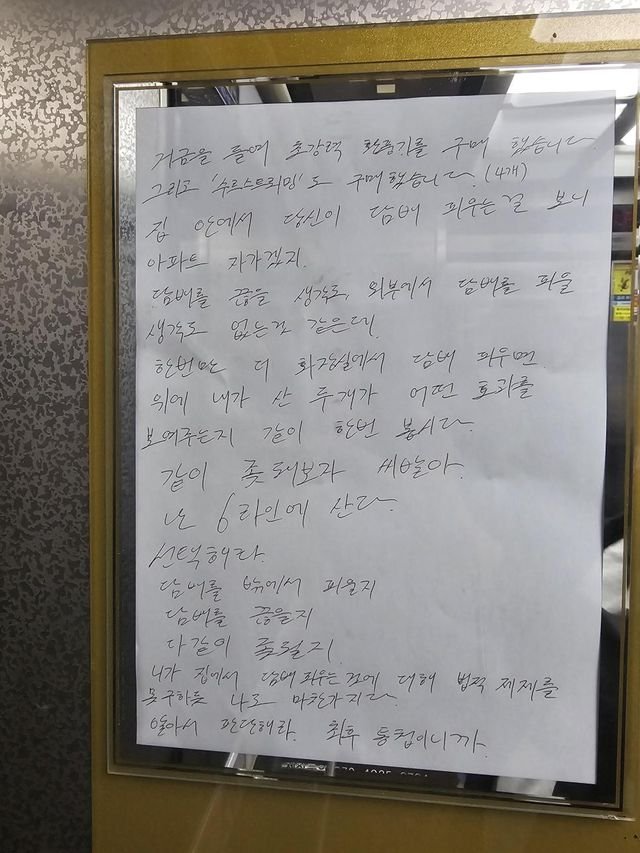 거금을 들여 초강력 환풍기를 구매 했습니다.
그리고 '수르스트뢰밍'도 구매했습니다. (4개)
집 안에서 당신이 담배 피우는걸 보니
아파트 자가겠지.
담배를 끊을 생각도, 외부에서 담배를 피울
생각도 없는것 같은데,
한번만 더 화장실에서 담배 피우면
위에 내가 산 두개가 어떤 효과를
보여주는지 같이 한번 봅시다.
같이 좆돼보자 씨발아.
난 6라인에 산다.
선택해라.
담배를 밖에서 피울지
담배를 끊을지
다같이 좆될지.
니가 집에서 담배 피우는 것에 대해 법적 제제를
못 구하듯 나도 마찬가지다.
알아서 판단해라. 최후 통첩이니까.